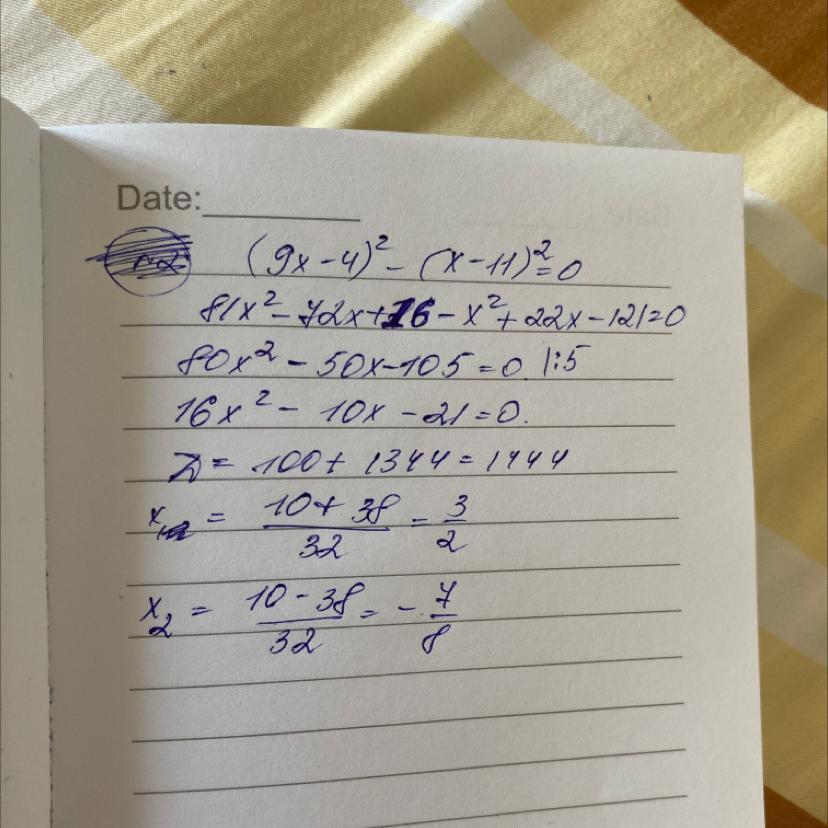 Date:
№2 (9x-4)² - (x-11)² = 0
81x² - 72x + 16 - x² + 22x - 121 = 0
80x² - 50x - 105 = 0 |:5
16x² - 10x - 21 = 0.
D = 100 + 1344 = 1444
x₁ = (10 + 38)/32 = 3/2
x₂ = (10 - 38)/32 = - 7/8